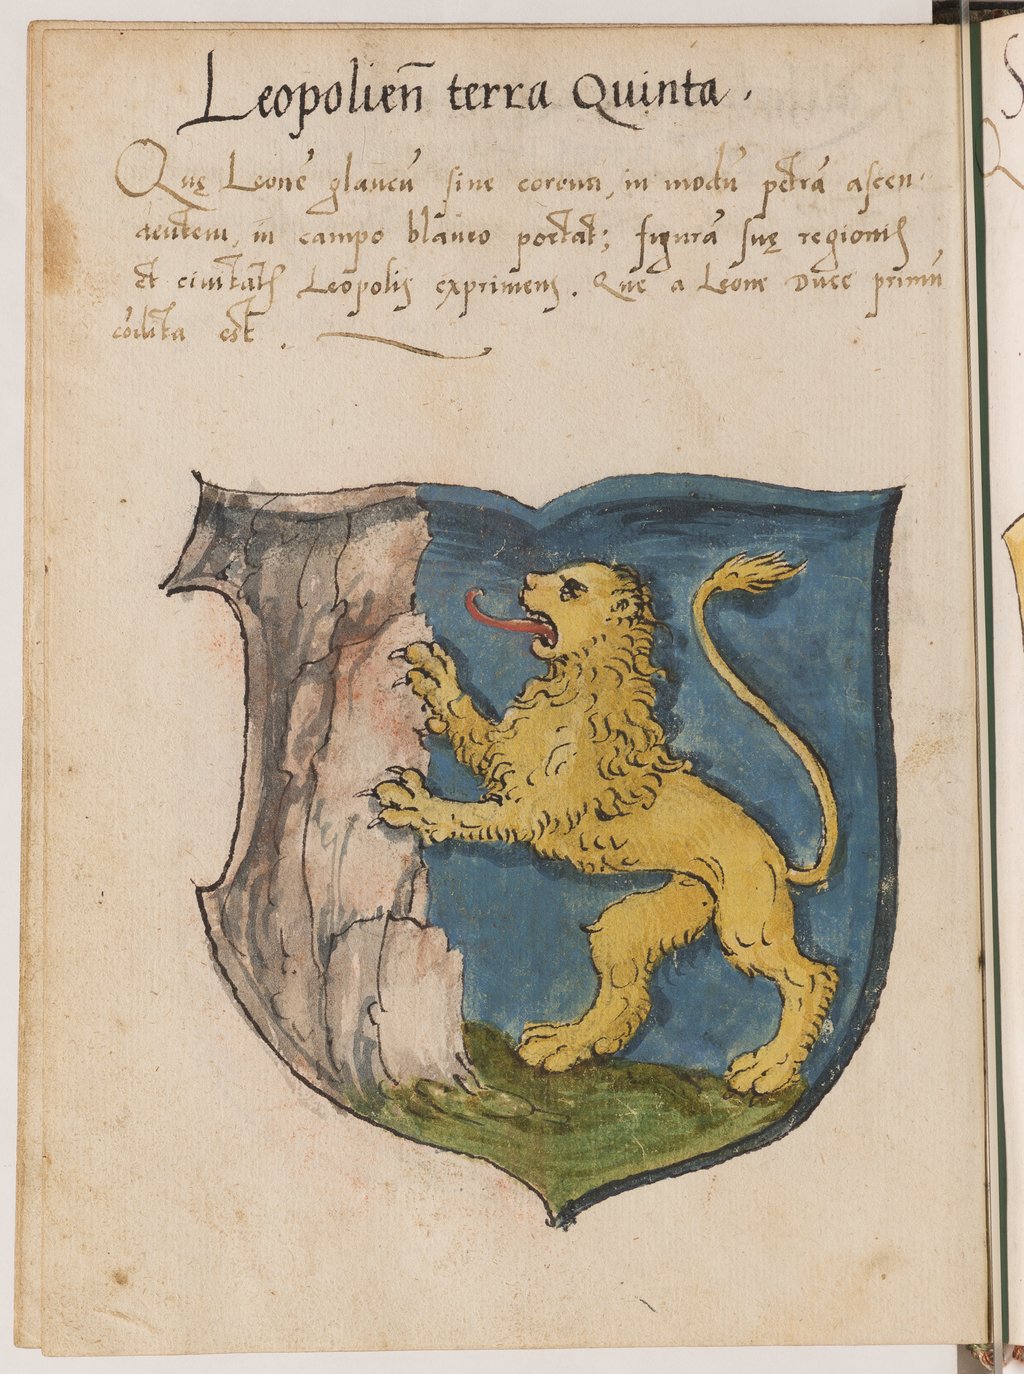 Leopolieñ terra Quinta .
Quę Leone᷃ glaucu᷃ sine corona, in modu᷃ petra᷃ ascen-
dentem, in campo blaneo portat; figura᷃ suę regionis
et ciuitatis Leopolis exprimens. Que a Leone Duce primu᷃
co᷃dita est .